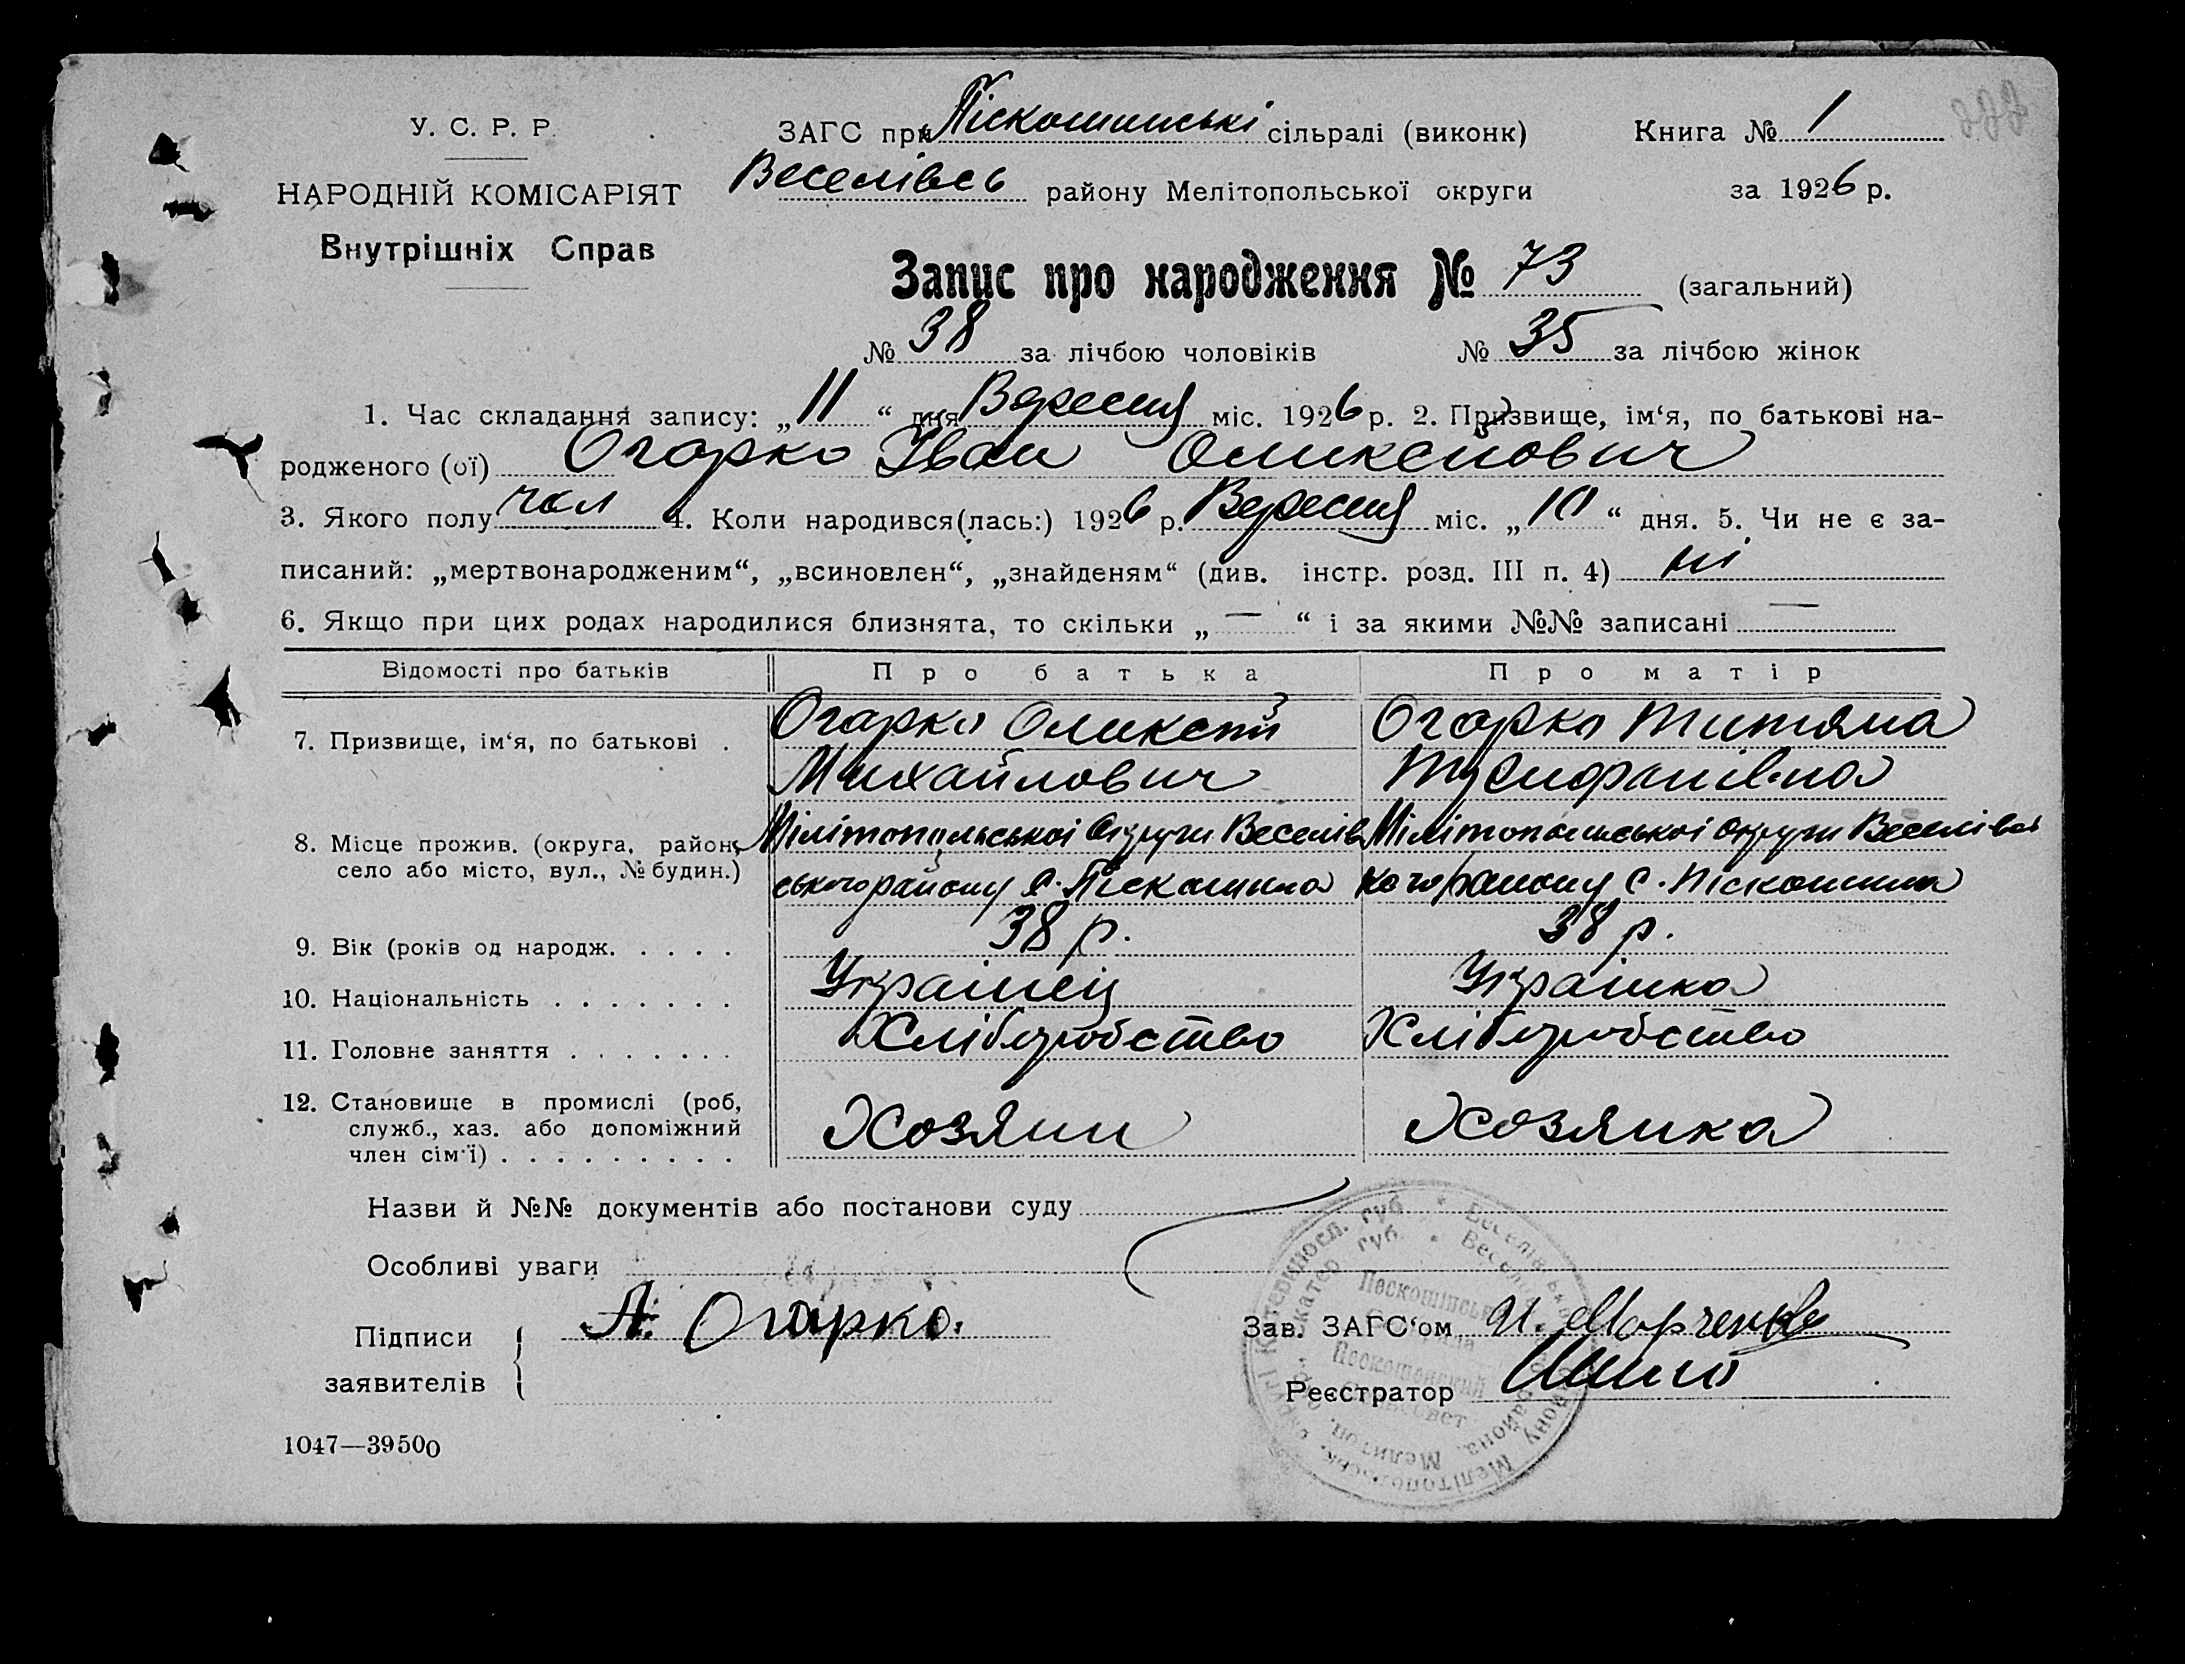 У. С. Р. Р.
НАРОДНІЙ КОМІСАРІЯТ
Внутрішніх Справ
ЗАГС при Піскошинські сільраді (виконк)
Книга № 1
Веселівсь району Мелітопольської округи
за 1926 р.
Запис про народження № 73 (загальний)
№ 38 за лічбою чоловіків № 35 за лічбою жінок
1. Час складання запису: „11“ дня Вересня міс. 1926 р. 2. Призвище, ім‘я, по батькові на-
родженого (ої) Огарко Іван Оликсійович
3. Якого полу чол 4. Коли народився(лась:) 1926 р. Вересня міс. „10“ дня. 5. Чи не є за-
писаний: „мертвонародженим“, „всиновлен“, „знайденям“ (див. інстр. розд. III п. 4) ні
6. Якщо при цих родах народилися близнята, то скільки „—“ і за якими №№ записані —
Відомості про батьків Про батька Про матір
7. Призвище, ім‘я, по батькові . Огарко Оликсій Огарко Титяна
Михайлович
8. Місце прожив. (округа, район, Мілітопольської Округи Веселів Мілітопольської Округи Веселівсь
село або місто, вул., № будин.) ського району с. Піскошино кого району с. Піскошино
9. Вік (років од народж. . . . . 38 р. 38 р.
10. Національність . . . . . . . Украінец Украінка
11. Головне заняття . . . . . . . Хліборобство Хліборобство
12. Становище в промислі (роб,
служб., хаз. або допоміжний Хозяин Хозяйка
член сім‘ї) . . . . . . . . .
Назви й №№ документів або постанови суду
Особливі уваги
Підписи
заявителів
А. Огарко.
Зав. ЗАГС‘ом И. Марченко
Реєстратор
1047—39500